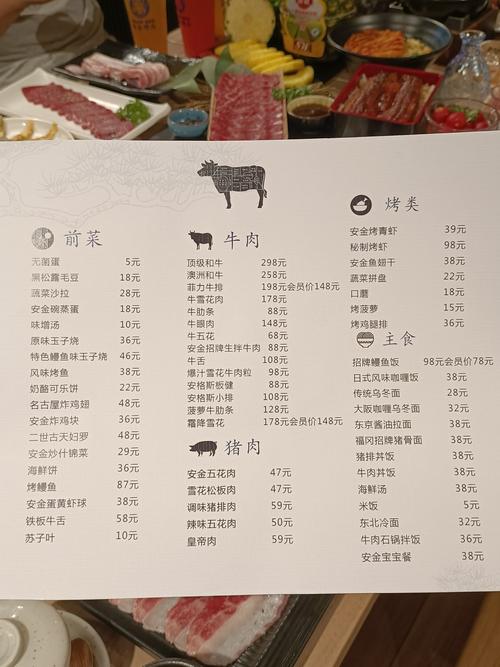 前菜
无菌蛋 5元
黑松露毛豆 18元
蔬菜沙拉 28元
安金碗蒸蛋 18元
味增汤 10元
原味玉子烧 36元
特色鳗鱼味玉子烧 46元
风味烤鱼 38元
奶酪可乐饼 22元
名古屋炸鸡翅 48元
安金炸鸡块 36元
二世古天妇罗 48元
安金炒什锦菜 29元
海鲜饼 36元
烤鳗鱼 87元
安金蛋黄虾球 38元
铁板牛舌 58元
苏子叶 10元
牛肉
顶级和牛 298元
澳洲和牛 258元
菲力牛排 198元会员价148元
牛雪花肉 178元
牛肋条 88元
牛眼肉 148元
牛五花 68元
安金招牌生拌牛肉 88元
牛舌 108元
爆汁雪花牛肉粒 98元
安格斯板健 88元
安格斯小排 108元
菠萝牛肋条 128元
霜降雪花 178元会员价148元
猪肉
安金五花肉 47元
雪花松板肉 47元
调味猪排肉 59元
辣味五花肉 50元
皇帝肉 59元
烤类
安金烤青虾 39元
秘制烤虾 98元
安金鱼翅干 38元
蔬菜拼盘 22元
口蘑 18元
烤菠萝 15元
烤鸡腿排 36元
主食
招牌鳗鱼饭 98元会员价78元
日式风味咖喱饭 38元
传统乌冬面 28元
大阪咖喱乌冬面 32元
东京酱油拉面 38元
福冈招牌猪骨面 38元
猪排丼饭 38元
牛肉丼饭 38元
海鲜汤 38元
米饭 5元
东北冷面 32元
牛肉石锅拌饭 36元
安金宝宝餐 38元